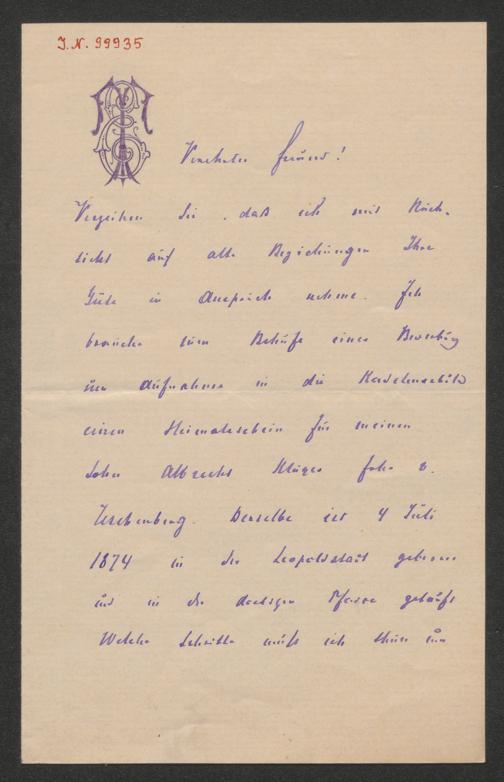 J.N. 99935
Verehrter Freund!
Verzeihen Sie, daß ich mit Rück-
sicht auf alte Beziehungen Ihre
Güte in Anspruch nehme. Ich
brauche zum Behufe einer Bewerbung
um Aufnahme in die Kadetenschule
einen Heimatsschein für meinen
Sohn Albrecht Klüger v.
Teschenberg. Derselbe ist 4 Juli
1874 in der Leopoldstadt geboren
und in der dortigen Pfarre getauft
Welche Schritte muß ich thun um